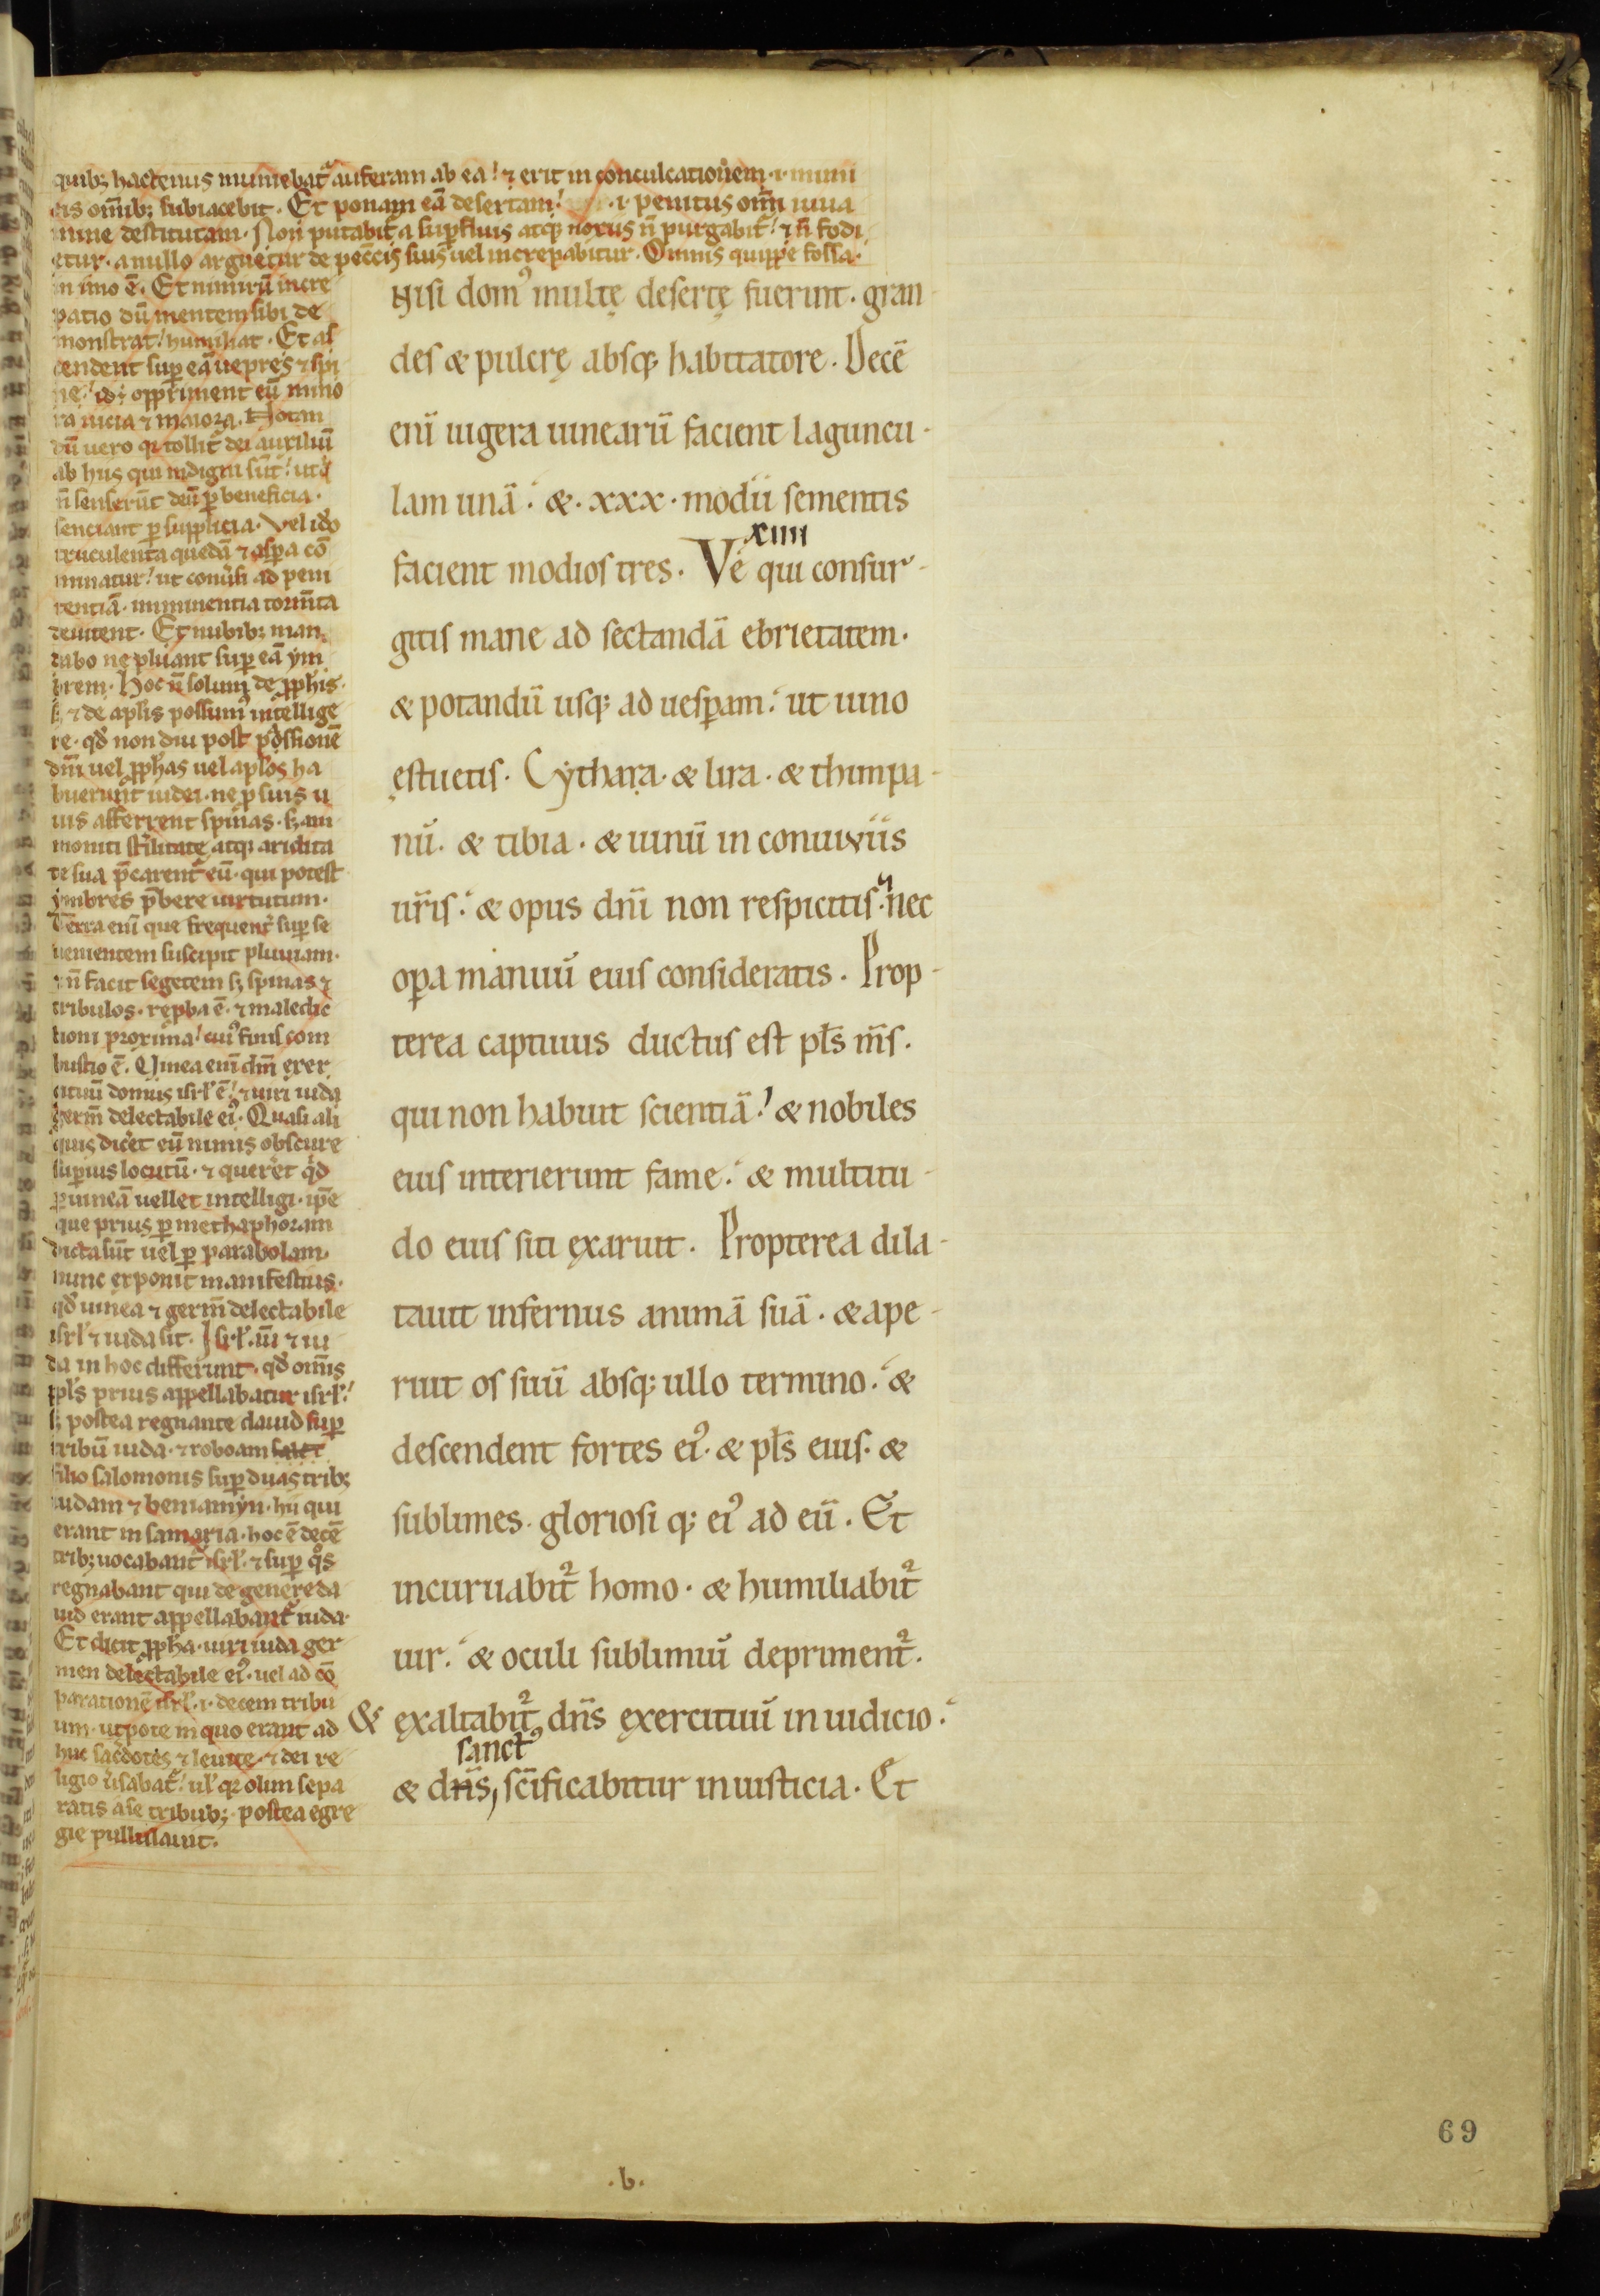 quib; hactenus muniebat᷑ auferam ab ea! ⁊ erit in conculcationem .i. inimi
cis om̄ib; subiacebit. Et ponam eā desertam! .i. penitus om̄i iuua
mine destitutam. Non putabit᷑ a suꝑfluis atq; noxus n̄ purgabit᷑! ⁊ n̄ fodi
etur. a nullo arguetur de peccis̄ suis uel increpabitur. Omnis quippe fossa.
in imo ē. Et nimirū incre
patio dū mentem sibi de
monstrat! humiliat. Et as
cendent suꝑ eā uepres ⁊ spi
ne! id ÷ oppriment eū mino
ra uicia ⁊ maiora. Notan
dū uero qꝫ tollit᷑ dei auxiliū
ab hiis qui indigni sūt! ut q̇
n̄ senserūt deū ꝑ beneficia.
senciant ꝑ supplicia. Vel ido
truculenta quedā ⁊ asꝑa cō
minatur! ut conūsi ad peni
tentiā. imminentia torm̄ta
deuitent. Et nubib; man
dabo ne pluant suꝑ eā ym
brem. Hoc n̄ solum de ꝓphis.
s; ⁊ de aplis possum᷒ intellige
re. qd̄ non diu post p̄dōssionē
dn̄i uel ꝓphas uel aplos ha
buerunt iudei. ne ꝑ suis u
uis afferrent spinas. s; am
moniti st̄ilitate atq; aridita
te sua p̄carent᷑ eū. qui potest
ymbres p̄bere uirtutum.
Terra eni que frequent᷑ suꝑ se
uenientem suscipit pluuiam.
⁊ n̄ facit segetem s; spinas ⁊
tribulos. rep̄ba ē. ⁊ maledic
tioni proxima! cui᷒ finis com
bustio ē. Vinea eni dn̄i exer
cituū domus isrł ē! ⁊ uiri iuda
germ̄ delectabile ei᷒. Quasi ali
quis dicet eū nimis obscure
suꝑius locutū. ⁊ queret qd̄
ꝑ uineā uellet intelligi. ip̄e
que prius ꝑ methaphoram
dicta sūt uel ꝑ parabolam.
nunc exponit manifestius.
qd̄ uinea ⁊ germ̄ delectabile
isrł ⁊ iuda sit. Isrł. aū ⁊ iu
da in hoc differunt. qd̄ om̄is
pls̄ prius appellabatur isrł!
s; postea regnante dauid suꝑ
tribū iuda. ⁊ roboam
filio salomonis suꝑ duas trib;
iudam ⁊ beniamyn. hii qui
erant in samaria. hoc ē decē
trib; uocabant᷑ isrł. ⁊ suꝑ qͦs
regnabant qui de genere da
uid erant appellabant᷑ iuda.
Et dicit ꝓpha. uiri iuda ger
men delectabile ei᷒. uel ad cō
parationē isrł .i. decem tribu
um. utpote in quo erant ad
huc sac̄dotes ⁊ leuite. ⁊ dei re
ligio ūsabat᷑! ul̓ qꝫ olim sepa
ratis a se tribub; postea egre
gie pullulauit.
Nisi dom᷒ multę desertę fuerint. gran-
des & pulcrę absq; habitatore. Decē
eni iugera uinearū facient laguncu-
lam unā. & .xxx. modii sementis
xiiii
facient modios tres. Ve qui consur-
gitis mane ad sectandā ebrietatem.
& potandū usq; ad uesꝑam. ut uino
ęstuetis. Cythara. & lira. & thimpa-
nū. & tibia. & uinū in conuiuiis
ur̄is. & opus dn̄i non respicitis. nec
oꝑa manuū eius consideratis. Prop-
terea captiuus ductus est pls̄ m̄s.
qui non habuit scientiā! & nobiles
eius interierunt fame. & multitu-
do eius siti exaruit. Propterea dila-
tauit infernus animā suā. & ape-
ruit os suū absq; ullo termino. &
descendent fortes ei᷒. & pls̄ eius. &
sublimes. gloriosi q; ei᷒ ad eū. Et
incuruabit᷑ homo. & humiliabit᷑
uir. & oculi sublimiū depriment᷑.
& exaltabit᷑ dn̄s exercituū in iudicio.
sanct᷒
& dn̄s, sc̄ificabitur in iusticia. Et
.b.
69